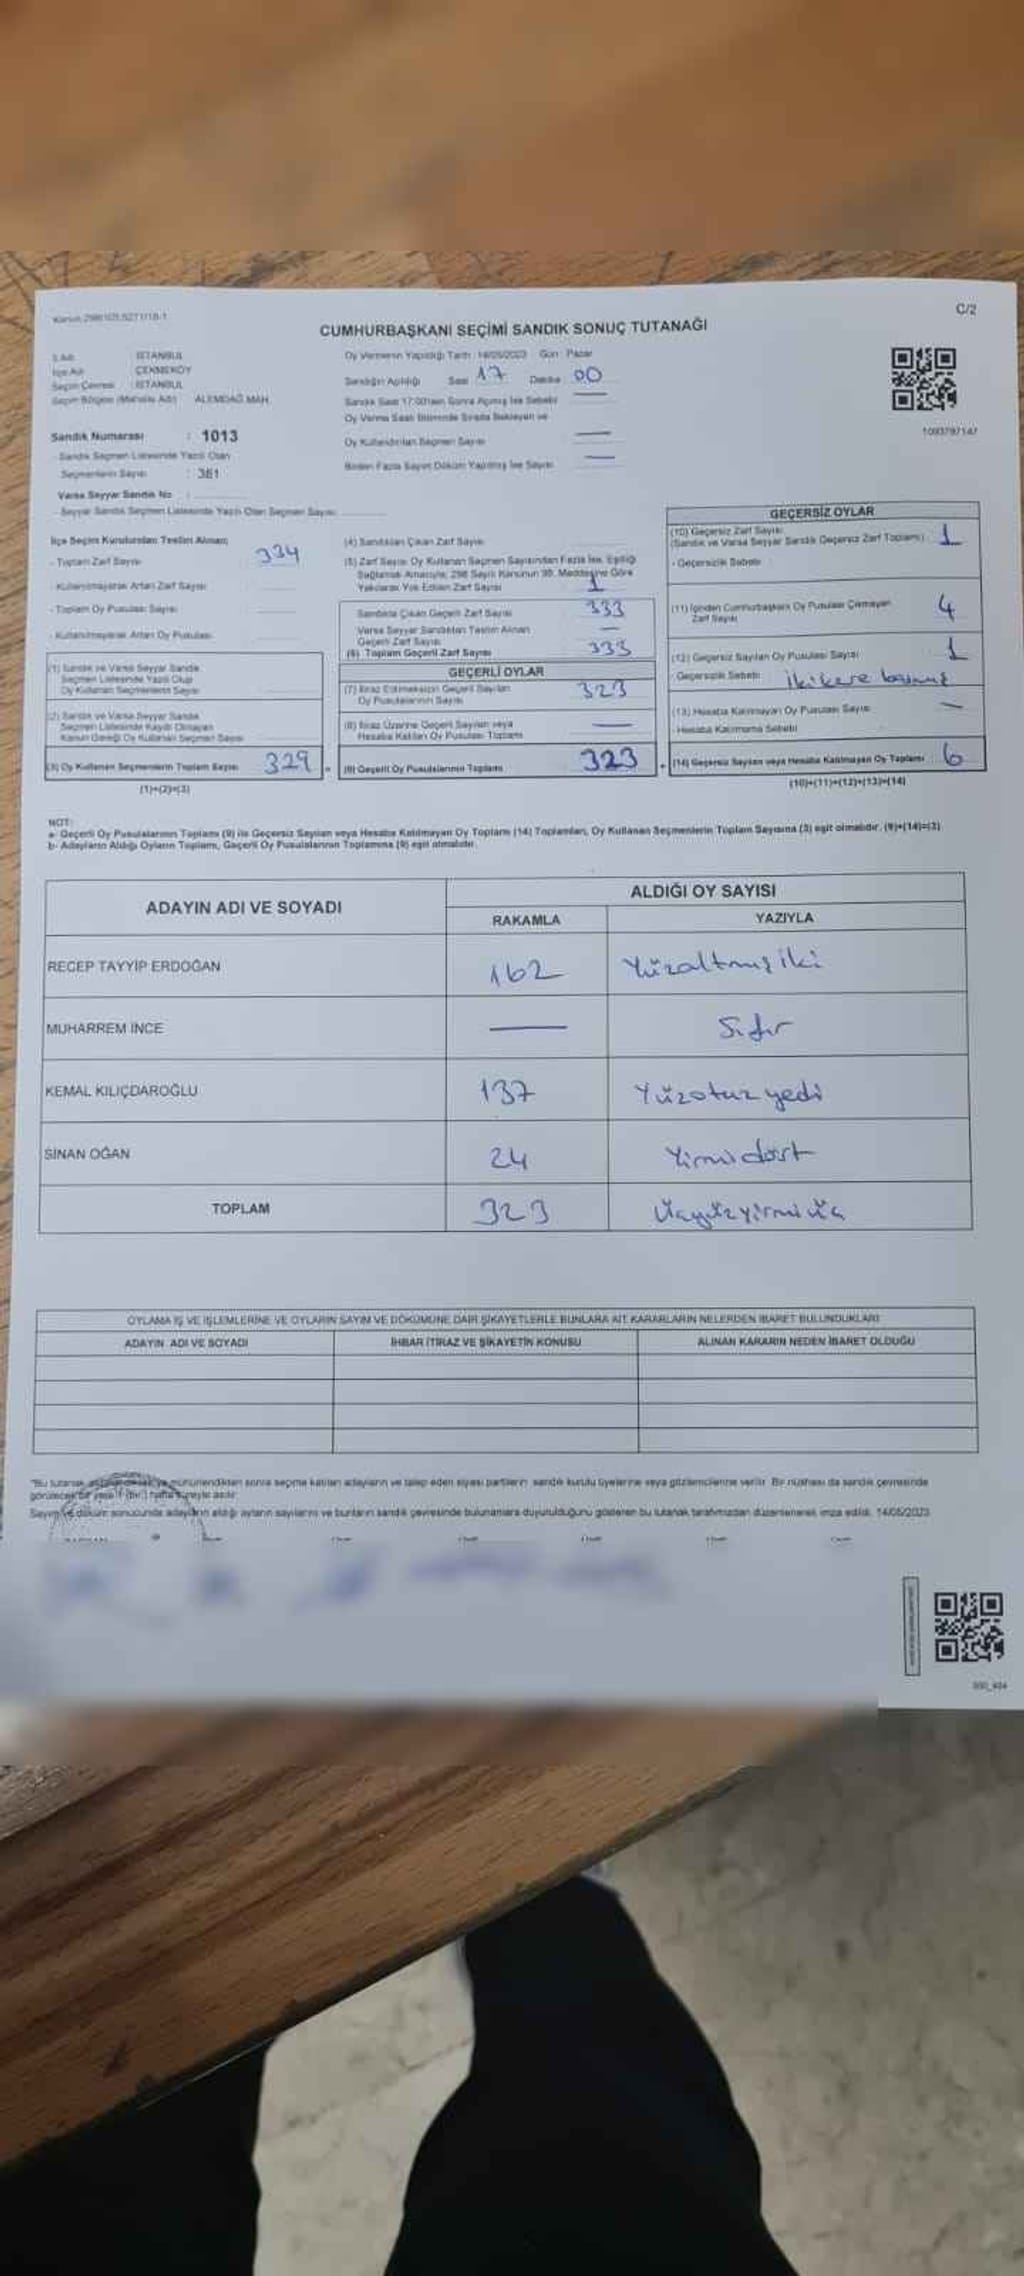 C/2
CUMHURBAŞKANI SEÇİMİ SANDIK SONUÇ TUTANAĞI
İl Adı : İSTANBUL
İlçe Adı : ÇEKMEKÖY
Seçim Çevresi : İSTANBUL
Seçim Bölgesi (Mahalle Adı) : ALEMDAĞ MAH.
Sandık Numarası : 1013
- Sandık Seçmen Listesinde Yazılı Olan
Seçmenlerin Sayısı : 381
Varsa Seyyar Sandık No :
- Seyyar Sandık Seçmen Listesinde Yazılı Olan Seçmen Sayısı
Oy Vermenin Yapıldığı Tarih : 14/05/2023 Gün : Pazar
Sandığın Açıldığı Saat 17 Dakika 00
Sandık Saat 17:00'den Sonra Açılmış İse Sebebi —
Oy Verme Saati Bitiminde Sırada Bekleyen ve
Oy Kullandırılan Seçmen Sayısı —
Birden Fazla Sayım Döküm Yapılmış İse Sayısı —
1093797147
İlçe Seçim Kurulundan Teslim Alınan;
- Toplam Zarf Sayısı 334
- Kullanılmayarak Artan Zarf Sayısı
- Toplam Oy Pusulası Sayısı
- Kullanılmayarak Artan Oy Pusulası
(1) Sandık ve Varsa Seyyar Sandık
Seçmen Listesinde Yazılı Olup
Oy Kullanan Seçmenlerin Sayısı
(2) Sandık ve Varsa Seyyar Sandık
Seçmen Listesinde Kayıtlı Olmayan
Kanun Gereği Oy Kullanan Seçmen Sayısı
(3) Oy Kullanan Seçmenlerin Toplam Sayısı 329
(1)+(2)=(3)
(4) Sandıktan Çıkan Zarf Sayısı
(5) Zarf Sayısı Oy Kullanan Seçmen Sayısından Fazla İse, Eşitliği
Sağlamak Amacıyla; 298 Sayılı Kanunun 98. Maddesine Göre
Yakılarak Yok Edilen Zarf Sayısı 1
Sandıkta Çıkan Geçerli Zarf Sayısı 333
Varsa Seyyar Sandıktan Teslim Alınan
Geçerli Zarf Sayısı —
(6) Toplam Geçerli Zarf Sayısı 333
GEÇERLİ OYLAR
(7) İtiraz Edilmeksizin Geçerli Sayılan
Oy Pusulalarının Sayısı 323
(8) İtiraz Üzerine Geçerli Sayılan veya
Hesaba Katılan Oy Pusulası Toplamı —
(9) Geçerli Oy Pusulalarının Toplamı 323
GEÇERSİZ OYLAR
(10) Geçersiz Zarf Sayısı
(Sandık ve Varsa Seyyar Sandık Geçersiz Zarf Toplamı) 1
- Geçersizlik Sebebi
(11) İçinden Cumhurbaşkanı Oy Pusulası Çıkmayan
Zarf Sayısı 4
(12) Geçersiz Sayılan Oy Pusulası Sayısı 1
- Geçersizlik Sebebi
(13) Hesaba Katılmayan Oy Pusulası Sayısı —
- Hesaba Katılmama Sebebi
(14) Geçersiz Sayılan veya Hesaba Katılmayan Oy Toplamı 6
(10)+(11)+(12)+(13)=(14)
NOT:
a- Geçerli Oy Pusulalarının Toplamı (9) ile Geçersiz Sayılan veya Hesaba Katılmayan Oy Toplamı (14) Toplamları, Oy Kullanan Seçmenlerin Toplam Sayısına (3) eşit olmalıdır. (9)+(14)=(3)
b- Adayların Aldığı Oyların Toplamı, Geçerli Oy Pusulalarının Toplamına (9) eşit olmalıdır.
ADAYIN ADI VE SOYADI
ALDIĞI OY SAYISI
RAKAMLA YAZIYLA
RECEP TAYYİP ERDOĞAN 162 Yüzaltmışiki
MUHARREM İNCE — Sıfır
KEMAL KILIÇDAROĞLU 137 Yüzotuzyedi
SİNAN OĞAN 24 Yirmidört
TOPLAM 323 Üçyüzyirmiüç
OYLAMA İŞ VE İŞLEMLERİNE VE OYLARIN SAYIM VE DÖKÜMÜNE DAİR ŞİKAYETLERLE BUNLARA AİT KARARLARIN NELERDEN İBARET BULUNDUKLARI
ADAYIN ADI VE SOYADI
İHBAR İTİRAZ VE ŞİKAYETİN KONUSU
ALINAN KARARIN NEDEN İBARET OLDUĞU
mühürlendikten sonra seçime katılan adayların ve talep eden siyasi partilerin sandık kurulu üyelerine veya gözlemcilerine verilir. Bir nüshası da sandık çevresinde
Sayım ve döküm sonucunda adayların aldığı oyların sayılarını ve bunların sandık çevresinde bulunanlara duyurulduğunu gösteren bu tutanak tarafımızdan düzenlenerek imza edildi. 14/05/2023